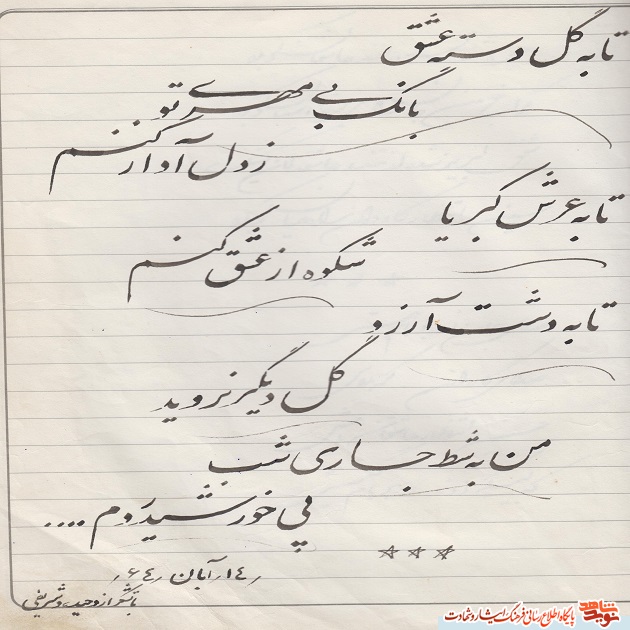 تا به گل دسته عشق
بانگ بی مهری تو
ز دل آوار کنم
تا به عرش کبریا
شکوه از عشق کنم
تا به دشت آرزو
گل دیگر نروید
من به شط جاری شب
پی خورشید روم ....
۱۴ر آبان ر۶۴ر
با تشکر از وحید شریفی
نوید شاهد
پایگاه اطلاع رسانی فرهنگ ایثار و شهادت